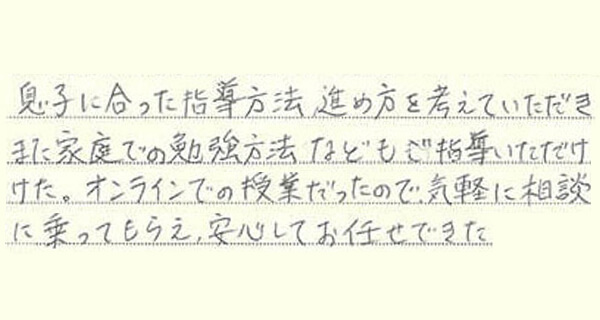 息子に合った指導方法、進め方を考えていただき
また家庭での勉強方法などもご指導いただけ
けた。オンラインでの授業だったので、気軽に相談
に乗ってもらえ、安心してお任せできた